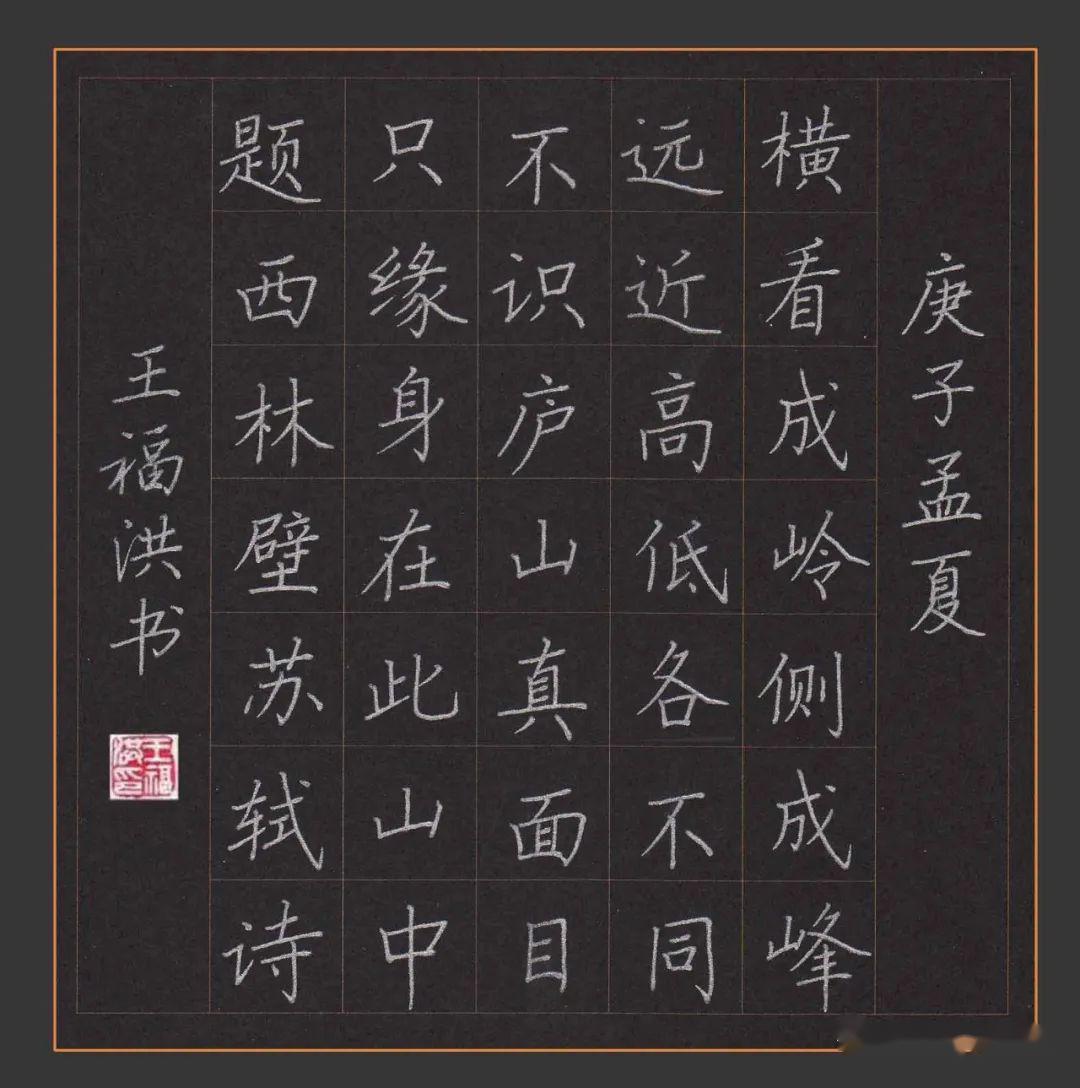 庚子孟夏
横看成岭侧成峰
远近高低各不同
不识庐山真面目
只缘身在此山中
题西林壁苏轼诗
王福洪书
王福
洪印